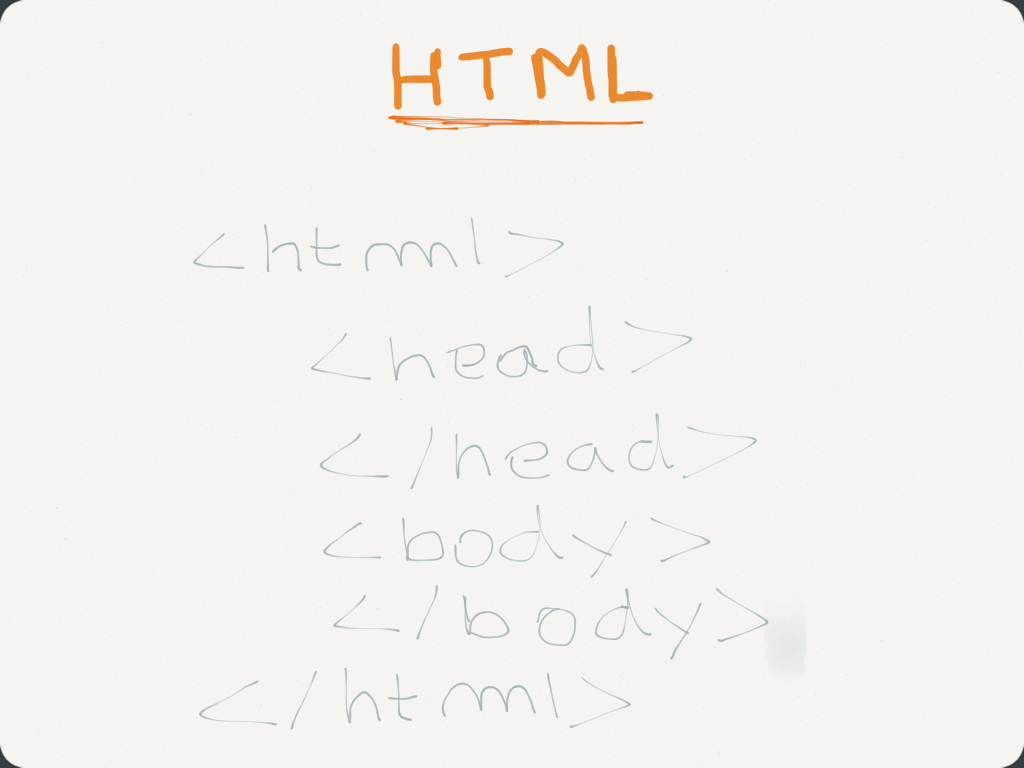 HTML
<html>
<head>
</head>
<body>
</body>
</html>